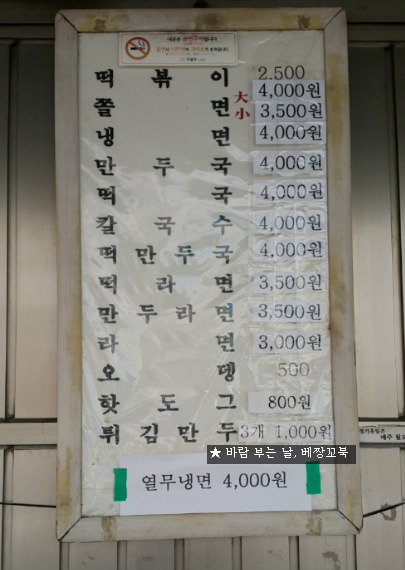 떡 볶 이 2,500
쫄 면 大 4,000원
小 3,500원
냉 면 4,000원
만 두 국 4,000원
떡 국 4,000원
칼 국 수 4,000원
떡 만 두 국 4,000원
떡 라 면 3,500원
만 두 라 면 3,500원
라 면 3,000원
오 뎅 500
핫 도 그 800원
튀 김 만 두 3개 1,000원
★ 바람 부는 날, 베짱꼬북
열무냉면 4,000원